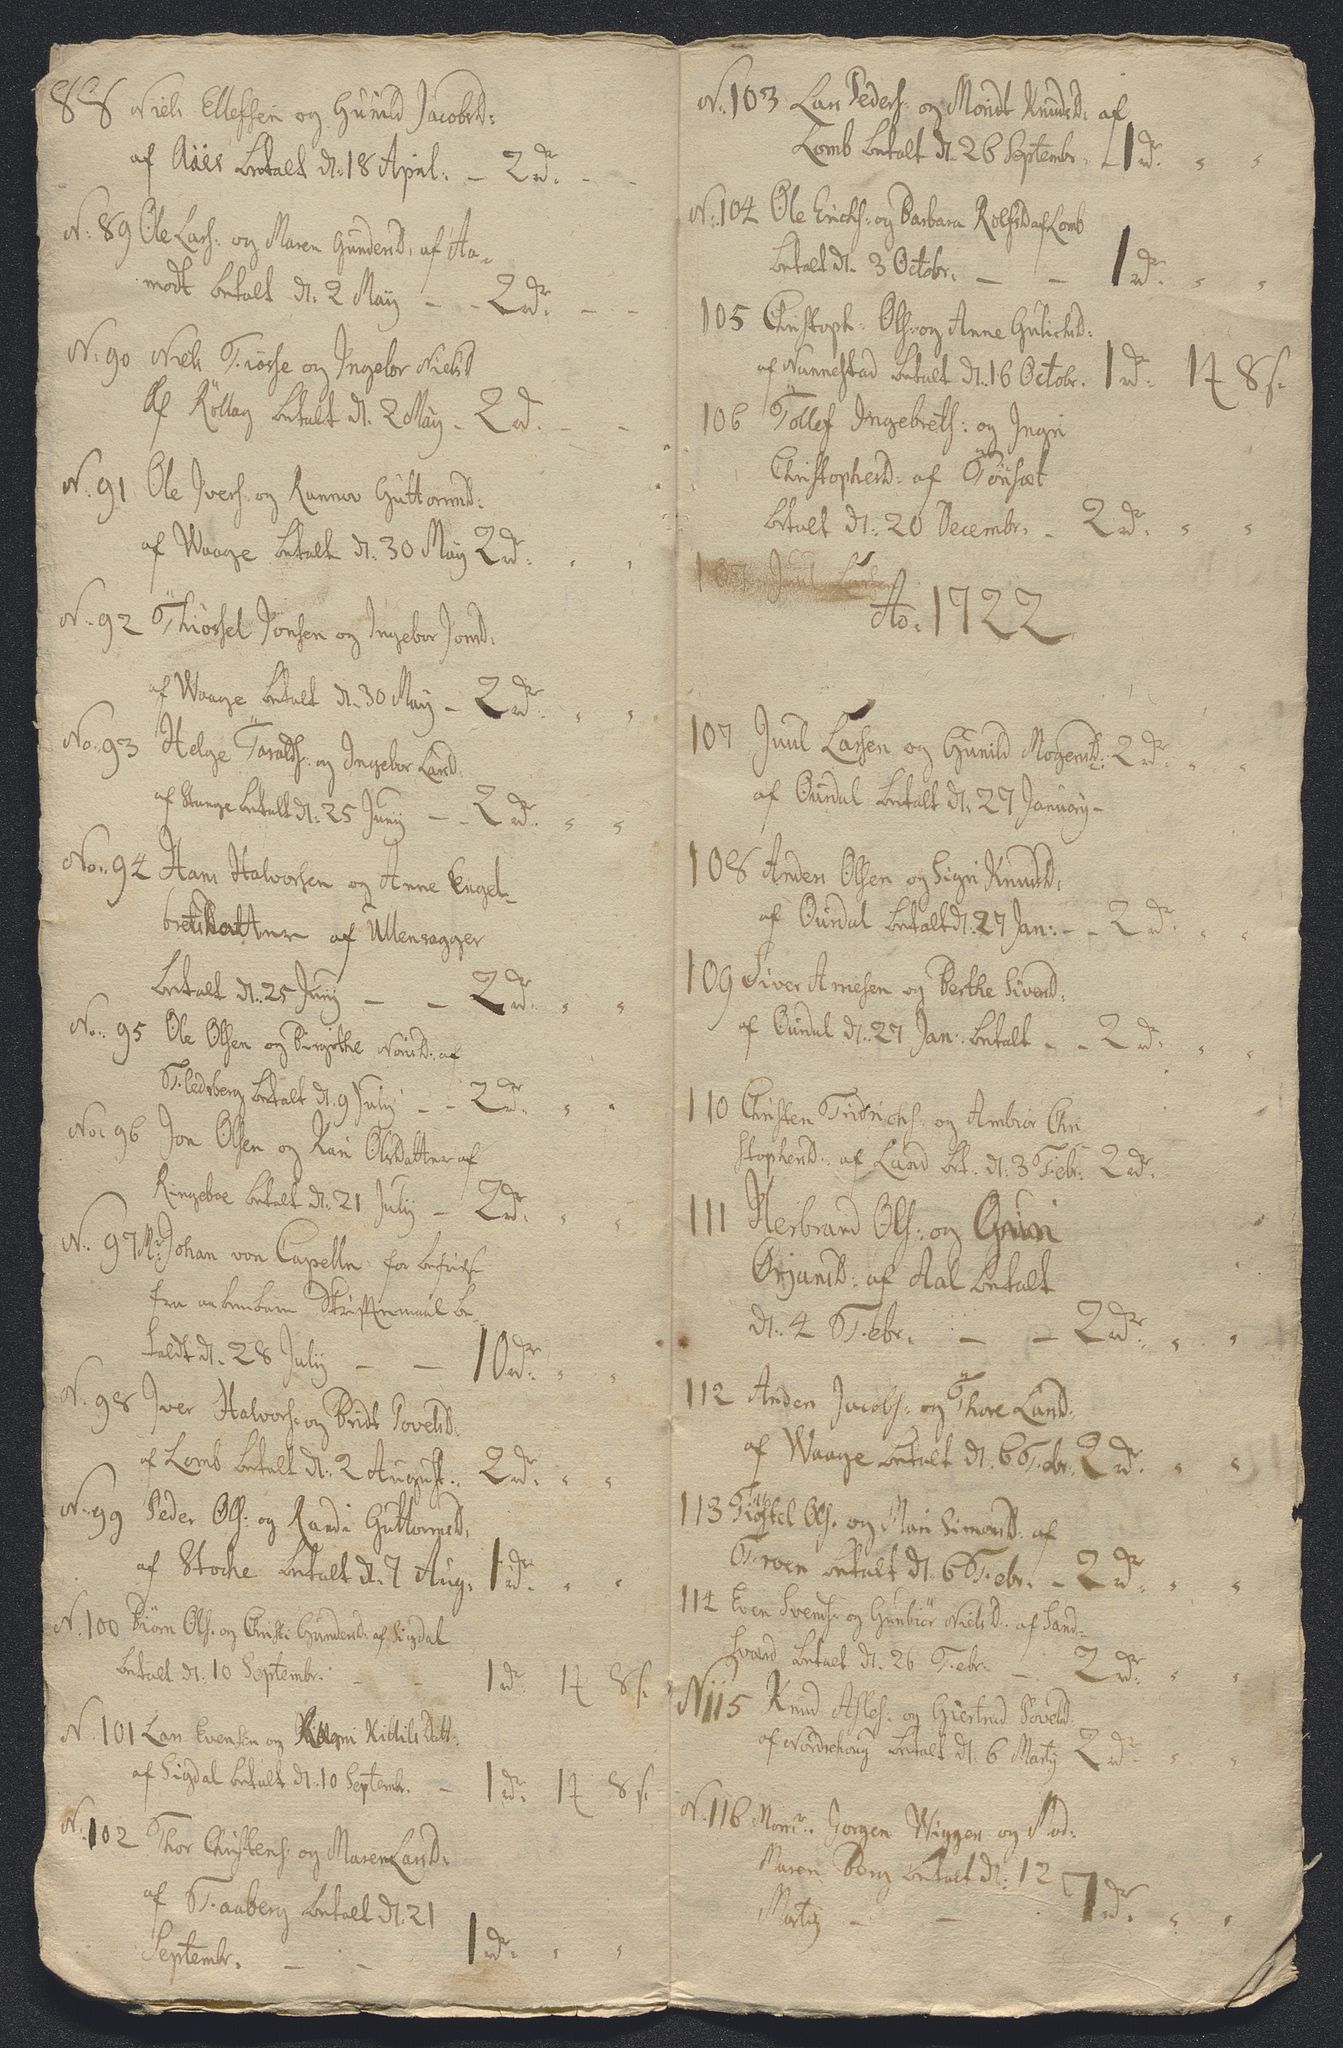 88 Niels Ellefsen og Gunild Jacobsd:
af Aaes betalt d: 18 April: – 2 rdr. – –
N: 89 Ole Lars: og Maren Gundersd: af Aa-
modt betalt d: 2 Maÿ – – 2 rdr. – –
N: 90 Niels Trosse og Ingebor Nielsd
Af Rollag betalt d: 2 Maÿ – 2 rd. – –
N: 91 Ole Ivers: og Rannov Guttormsd:
af Waage betalt d: 30 Maÿ 2 rdr. „ „
N: 92 Throssel Jonsen og Ingebor Jonsd:
af Waage betalt d: 30 Maÿ – 2 rdr. „ „
No: 93 Helge Taralds: og Ingebor Larsd:
af Stange betalt d: 25 Junÿ – – 2 rdr. „ „
No: 94 Hans Halvorsen og Anne Engel-
bretsdatter af Ullensagger
betalt d: 25 Junÿ – – 2 rdr. „ „
No: 95 Ole Olsen og Birgithe af
Fledsberg betalt d: 9 Julÿ – – 2 rdr. „ „
No: 96 Jon Olsen og Kari Olsdatter af
Ringeboe betalt d: 21 Julÿ – 2 rdr. „ „
N: 97 Mr: Johan von Cappelln for
fra be-
taldt d: 28 Julÿ – – 10 rdr. „ „
N: 98 Iver Halvors: og Bridt Povelsd:
af Lomb betalt d: 2 August: 2 rdr. „ „
N: 99 Peder Ols: og Randi Guttormsd:
af Stocke betalt d: 7 Aug: 1 rdr. „ „
N: 100 Biörn Ols: og Christi Gundersd: af Sigdal
betalt d: 10 Septembr: – – 1 rdr. 1 ₰ 8 s.
N. 101 Lars Evensen og Kittils Datt:
af Sigdal betalt d: 10 Septembr. – 1 rdr. 1 ₰ 8 s.
N: 102 Thor Christens: og Maren Larsd:
af Faaberg betalt d: 21
Septembr. – – 1 rdr. „ „
N: 103 Lars Peders: og Maridt Knudsd: af
Lomb betalt d: 26 Septembr. – 1 rdr. „ „
N: 104 Ole Erichs: og Barbara Rolfsd af Lomb
betalt d: 3 Octobr. – – 1 rdr. „ „
105 Christoph: Ols: og Anne Gulichsd:
af Nannestad betalt d: 16 Octobr. 1 rdr. 1 ₰ 8 s.
106 Tollef Ingebrets: og Ingri
Christophersd: af Tönsæt
betalt d: 20 Decembr. – 2 rdr. „ „
107 Juul Larsen
Ao: 1722
107 Juul Larsen og Gunild Mogensd: 2 rdr. „ „
af Ourdal betalt d: 27 Januarÿ –
108 Anders Olsen og Sigri Knudsd:
af Ourdal betalt d: 27 Jan: – – 2 rdr. „ „
109 Siver Arnesen og Berthe Siversd:
af Ourdal d: 27 Jan: betalt – – 2 rd. „ „
110 Christen Fridrichs: og Ambior Chri
stophersd: af Land bet: d: 3 Febr: 2 rdr.
111 Herbrand Ols: og Guri
Örjansd: af Aal betalt
d: 4 Febr. – – 2 rdr. „ „
112 Anders Jacobs: og Thore Larsd:
af Waage betalt d: 6 Febr. 2 rdr. „ „
113 Tostel Ols: og Mari Simonsd: af
Froen betalt d: 6 Febr. – 2 rdr. „ „
114 Even Svends: og Gunbiör Nielsd: af Sand-
svard betalt d: 26 Febr: – 2 rdr. „ „
N 115 Knud Asles: og Giertrud Povelsd
af Nordrehoug betalt d: 6 Martÿ 2 rdr. „ „
N: 116 Monsr: Jorgen Wiggers og Mad:
Maren Berg betalt d: 12
Martÿ – – 7 rdr. „ „